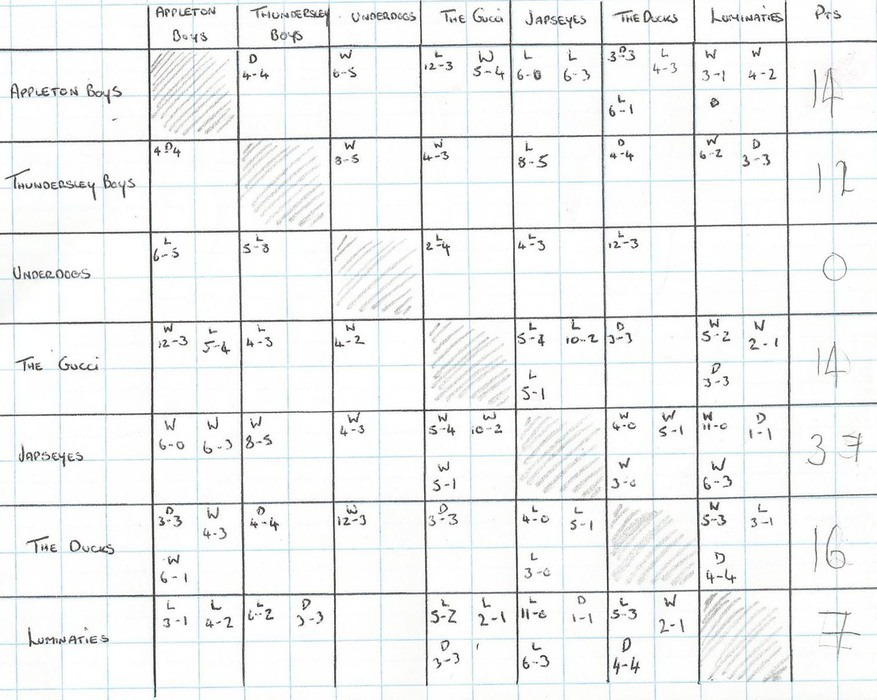 APPLETON BOYS THUNDERSLEY BOYS UNDERDOGS THE GUCCI JAPSEYES THE DUCKS LUMINATIES PTS
APPLETON BOYS D 4-4 W 6-5 L 12-3 W 5-4 L 6-0 L 6-3 D 3-3 L 4-3 L 6-1 W 3-1 W 4-2 14
THUNDERSLEY BOYS D 4-4 W 8-5 W 4-3 L 8-5 D 4-4 W 6-2 D 3-3 12
UNDERDOGS L 6-5 L 5-8 L 2-4 L 4-3 L 12-3 0
THE GUCCI W 12-3 L 5-4 L 4-3 W 4-2 L 5-4 L 10-2 L 5-1 D 3-3 W 5-2 W 2-1 D 3-3 14
JAPSEYES W 6-0 W 6-3 W 8-5 W 4-3 W 5-4 W 10-2 W 5-1 W 4-0 W 5-1 W 3-0 W 11-0 D 1-1 W 6-3 37
THE DUCKS D 3-3 W 4-3 W 6-1 D 4-4 W 12-3 D 3-3 L 4-0 L 5-1 L 3-0 W 5-3 L 3-1 D 4-4 16
LUMINATIES L 3-1 L 4-2 L 6-2 D 3-3 L 5-2 L 2-1 D 3-3 L 11-0 D 1-1 L 6-3 L 5-3 W 2-1 D 4-4 7